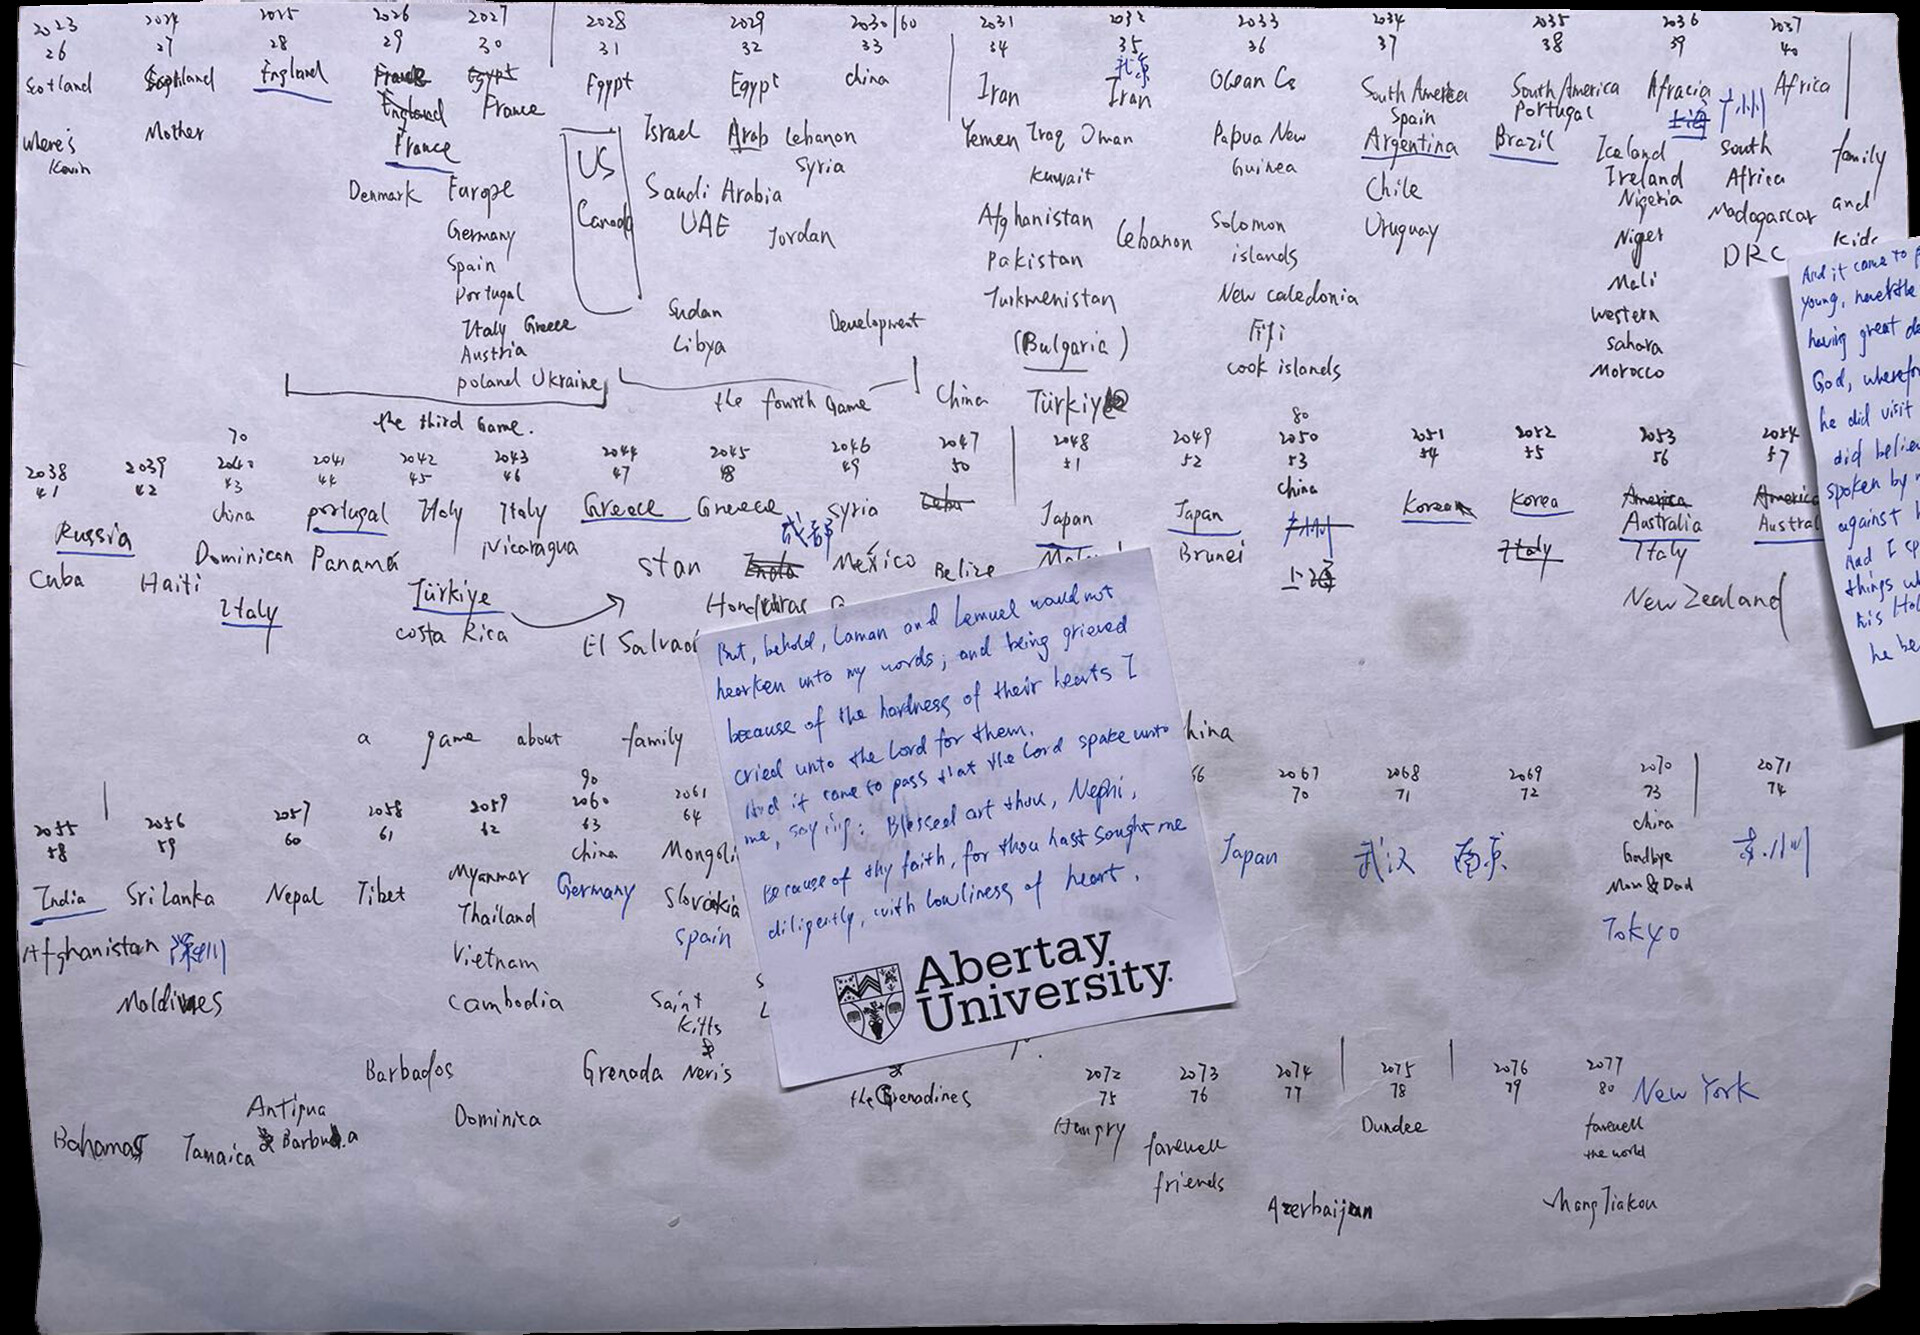 2023 2024 2025 2026 2027 2028 2029 2030/60 2031 2032 2033 2034 2035 2036 2037
26 27 28 29 30 31 32 33 34 35 36 37 38 39 40
Scotland Scotland England France Egypt Egypt Egypt china Iran Iran Ocean South America South America Africa Africa
England France Spain Portugal 上海 广州
where's Kevin Mother France US Israel Arab Lebanon Yemen Iraq Oman Papua New Guinea Argentina Brazil Iceland South Africa family
Syria Kuwait Ireland
Denmark Europe Canada Saudi Arabia Chile Nigeria Madagascar and
Germany UAE Jordan Afghanistan Lebanon Solomon islands Uruguay Niger DRC kids
Spain Pakistan Mali
Portugal Sudan Development Turkmenistan New Caledonia western sahara
Italy Greece Libya (Bulgaria) Fiji Morocco
Austria cook islands
poland Ukraine
the third Game. the fourth Game China Türkiye
70 80
2038 2039 2040 2041 2042 2043 2044 2045 2046 2047 2048 2049 2050 2051 2052 2053 2054
41 42 43 44 45 46 47 48 49 50 51 52 53 54 55 56 57
Russia china portugal Italy Italy Greece Greece Syria Cuba Japan Japan china Korea Korea America America
成都 广州 Australia
Cuba Haiti Dominican Panamá Nicaragua stan India México Belize Brunei 上海 Italy Italy
Italy Türkiye Honduras New Zealand
costa Rica El Salvador
a game about family
But, behold, Laman and Lemuel would not
hearken unto my words; and being grieved
because of the hardness of their hearts I
cried unto the Lord for them.
And it came to pass that the Lord spake unto
me, saying: Blessed art thou, Nephi,
because of thy faith, for thou hast sought me
diligently, with lowliness of heart.
Abertay
University.
And it came to
young,
having great
God,
he did visit
did
spoken by
against
And I
things
his
he
90
2055 2056 2057 2058 2059 2060 2061 2067 2068 2069 2070 2071
58 59 60 61 62 63 64 70 71 72 73 74
India Sri Lanka Nepal Tibet Myanmar china Japan 武汉 南京 china
Thailand Germany Slovakia Goodbye
Afghanistan 深圳 Vietnam Spain Mom & Dad
Maldives Cambodia Saint Kitts Tokyo
Barbados Grenada & Nevis
Antigua & Barbuda Dominica the Grenadines
Bahamas Jamaica
2072 2073 2074 2075 2076 2077
75 76 77 78 79 80 New York
Hungry farewell friends Dundee farewell the world
Azerbaijan